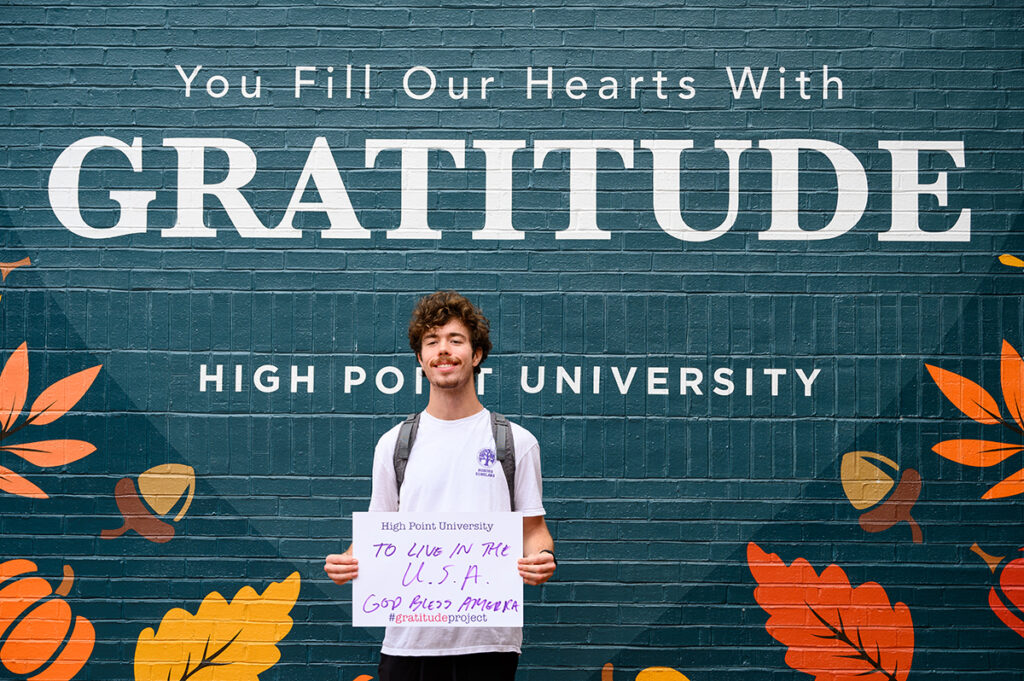 You Fill Our Hearts With
GRATITUDE
HIGH POINT UNIVERSITY
HONORS
SCHOLARS
High Point University
TO LIVE IN THE
U.S.A.
GOD BLESS AMERICA
#gratitudeproject